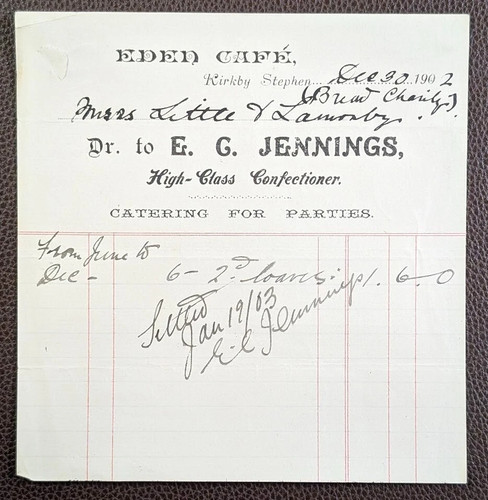 EDEN CAFÉ,
Kirkby Stephen... Dec 30 1902
(Bread Charity).
Messrs Little & Lamonby.
Dr. to E. C. JENNINGS,
High-Class Confectioner.
CATERING FOR PARTIES.
From June to
Dec - 6 - 2d loaves. 1. 6. 0
Settled
Jan 19/03
E C Jennings